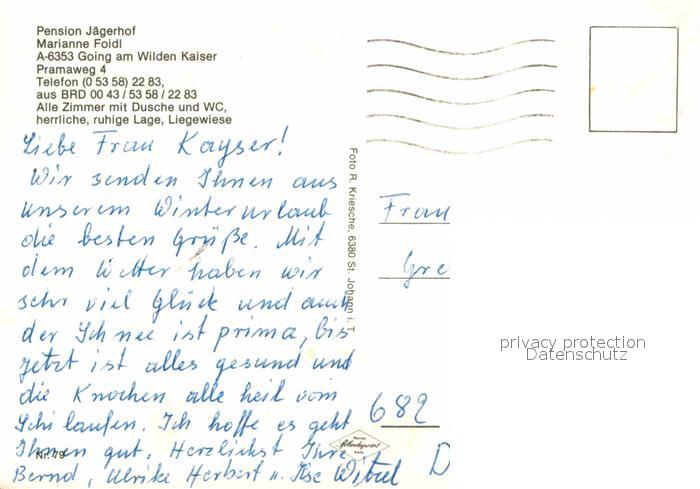 Pension Jägerhof
Marianne Foidl
A-6353 Going am Wilden Kaiser
Pramaweg 4
Telefon (0 53 58) 22 83,
aus BRD 00 43 / 53 58 / 22 83
Alle Zimmer mit Dusche und WC,
herrliche, ruhige Lage, Liegewiese
Liebe Frau Kayser!
Wir senden Ihnen aus
unserem Winterurlaub
die besten Grüße. Mit
dem Wetter haben wir
sehr viel Glück und auch
der Schnee ist prima, bis
jetzt ist alles gesund und
die Knochen alle heil vom
Schilaufen. Ich hoffe es geht
Ihnen gut. Herzlichst Ihre
Bernd, Ulrike Herbert u. Ilse
Nr. 79
Foto R. Kriesche, 6380 St. Johann i. T.
Frau
Gre
682
D
privacy protection
Datenschutz